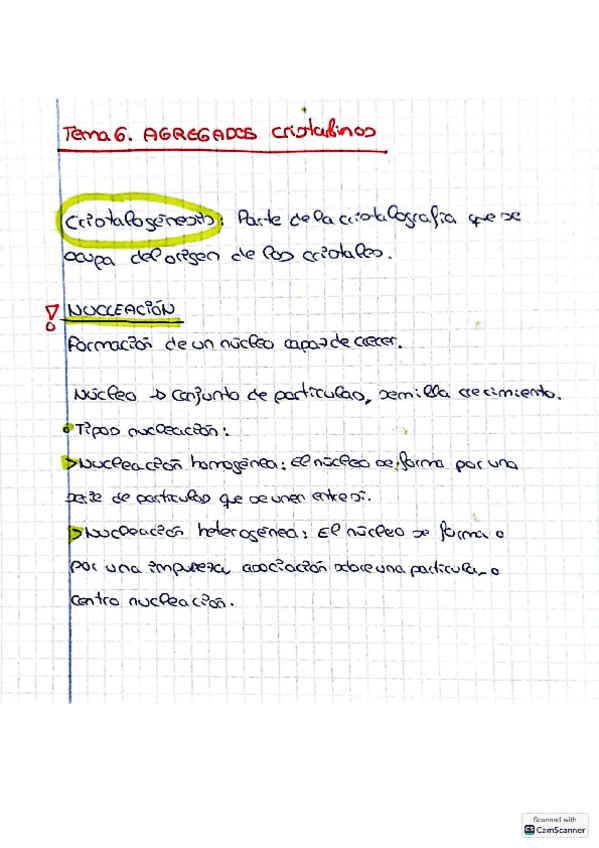 Tema 6. AGREGADOS cristalinos
Cristalogénesis: Parte de la cristalografia que se
ocupa del origen de los cristales.
NUCLEACIÓN
Formación de un núcleo capaz de crecer.
Núcleo → Conjunto de particulas, semilla crecimiento.
Tipos nucleación:
> Nucleación homogénea: El núcleo se forma por una
serie de particulas que se unen entre si.
> Nucleación heterogénea: El núcleo se forma o
por una impureza, asociación sobre una particula, o
centro nucleación.
Scanned with
CS CamScanner